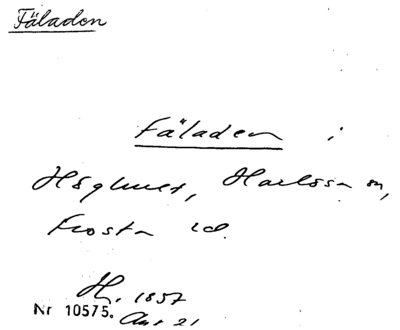 Fäladen
Fäladen i
Höglunet, Harlösa sn,
Frosta hd.
H. 1857
Nr 10575. Anr 21